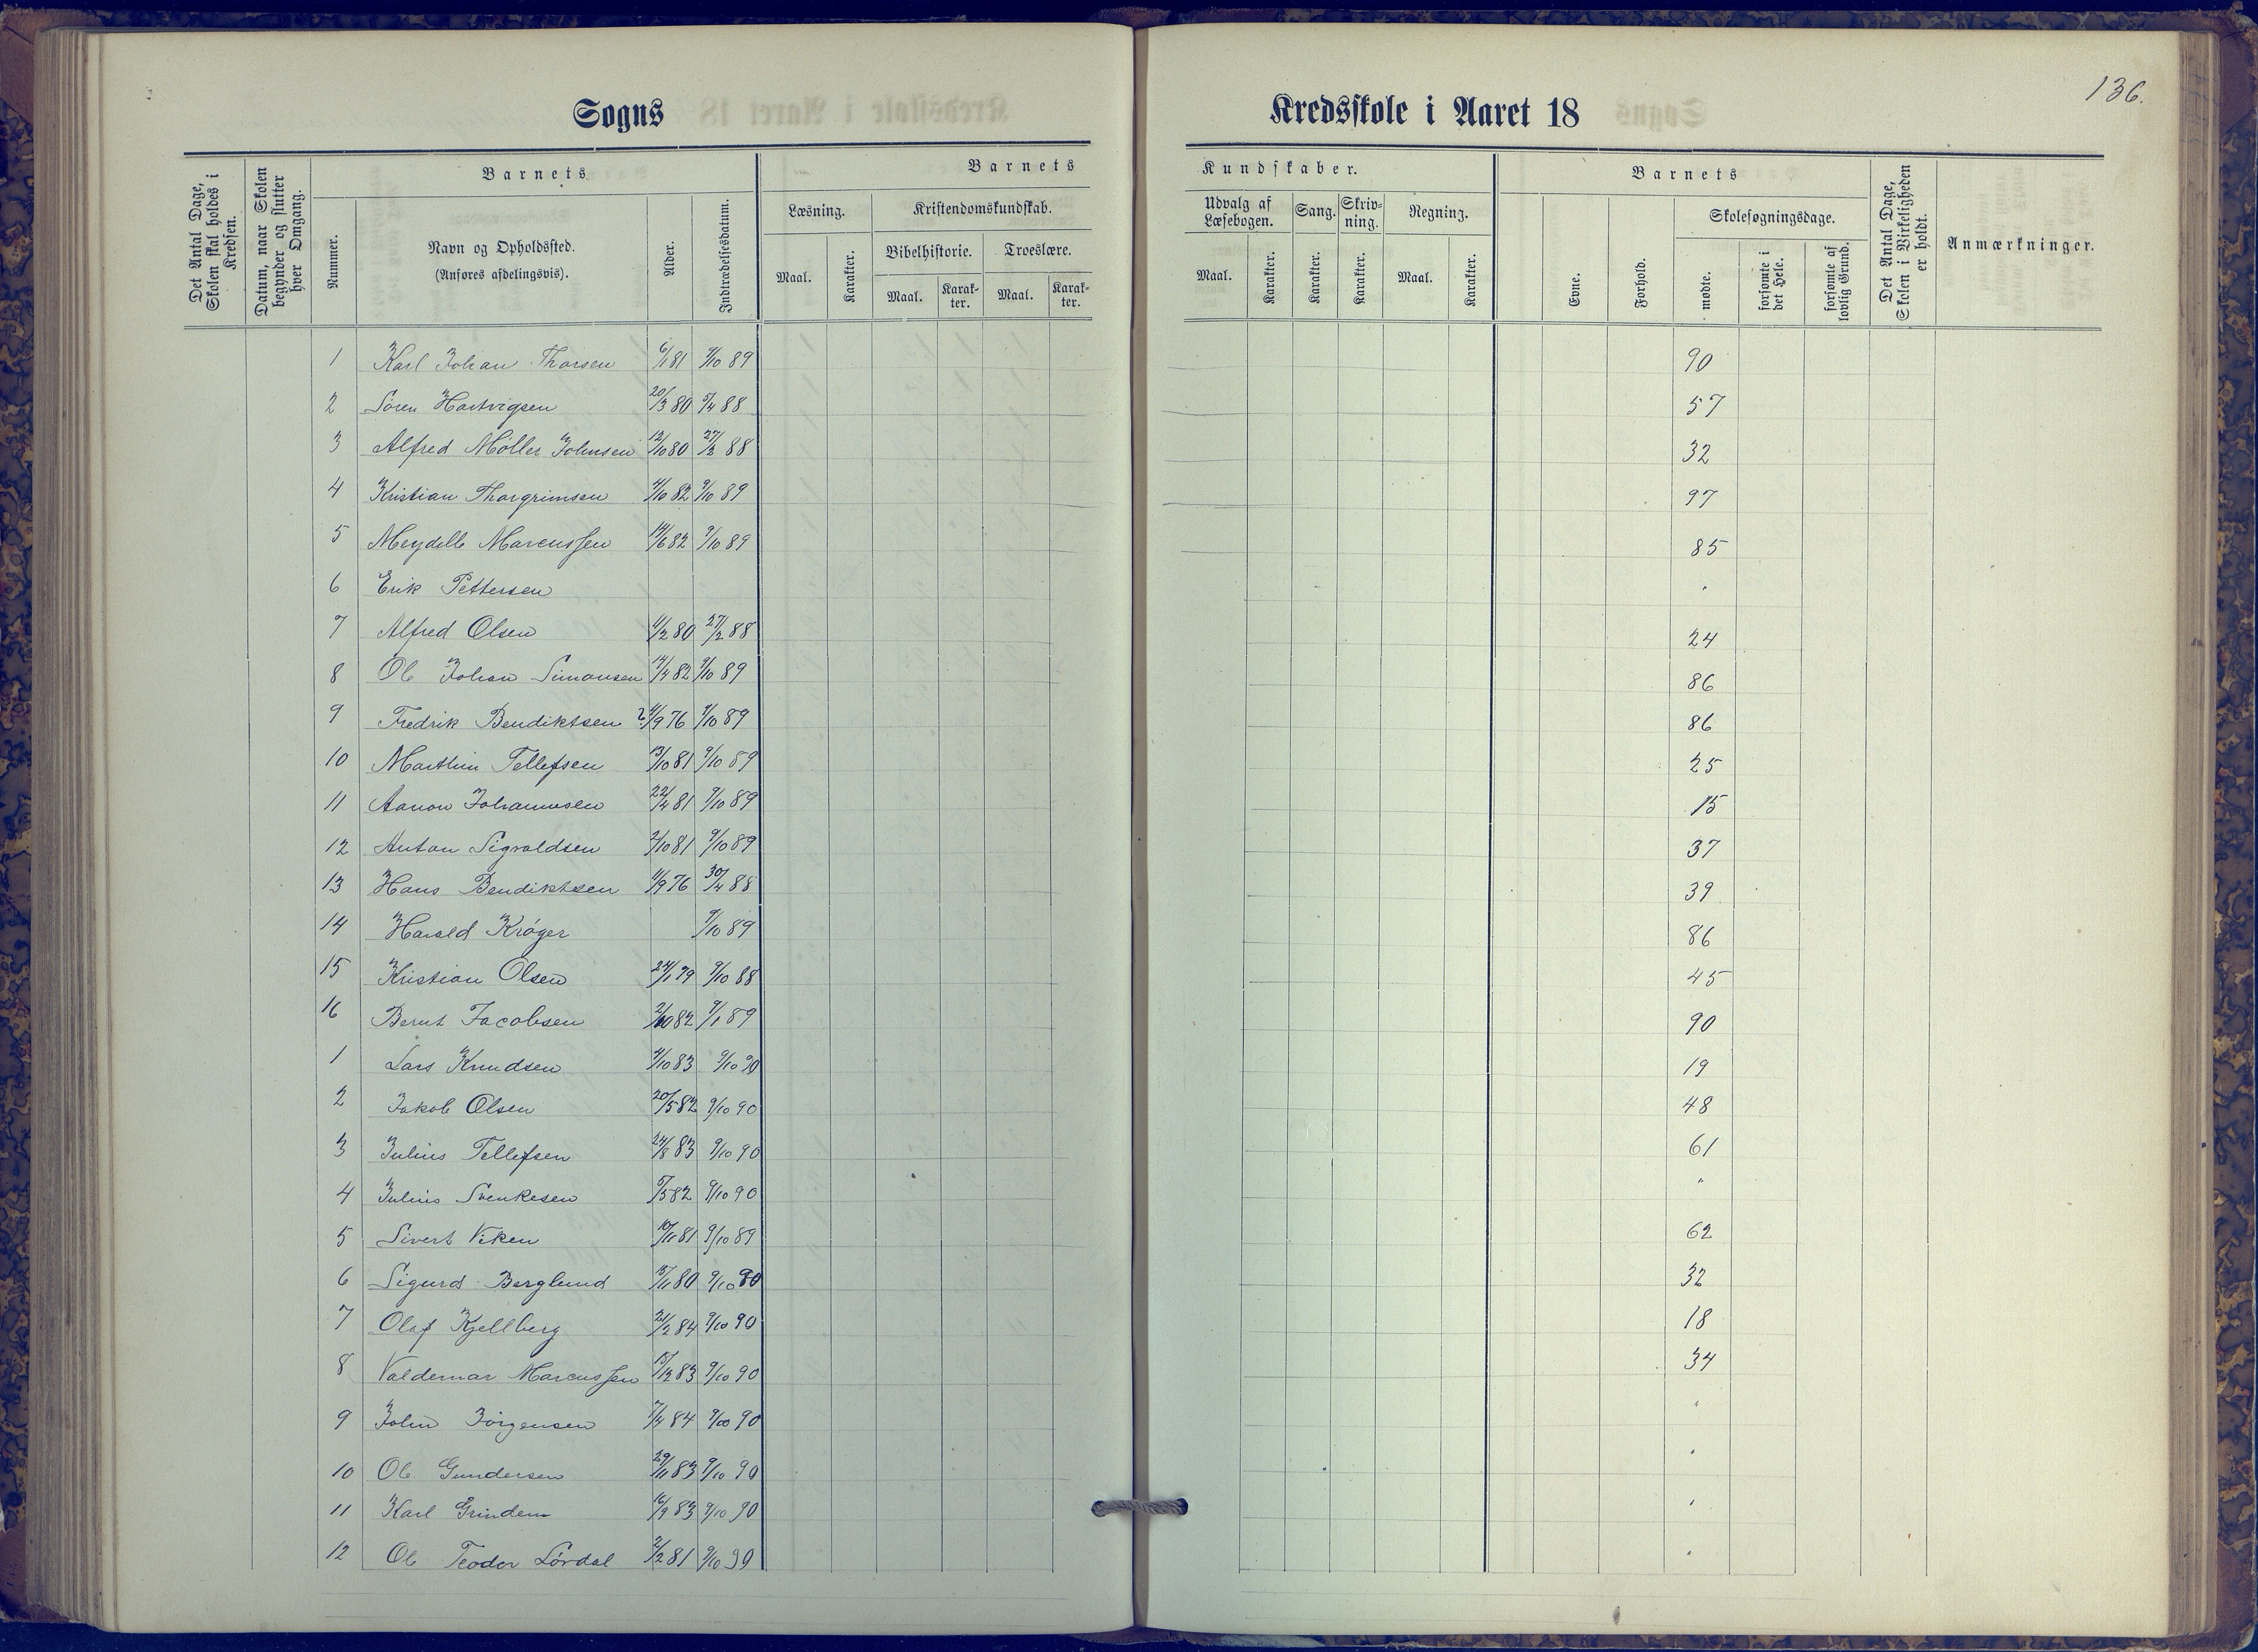 136.
Sogns Kredsskole i Aaret 18
Det Antal Dage, Skolen skal holdes i Kredsen.
Datum, naar Skolen begynder og slutter hver Omgang.
Barnets
Nummer.
Navn og Opholdssted.
(Anføres afdelingsvis).
Alder.
Indtrædelsesdatum.
Barnets Kundskaber.
Læsning.
Maal.
Karakter.
Kristendomskundskab.
Bibelhistorie.
Maal.
Karakter.
Troeslære.
Maal.
Karakter.
Udvalg af Læsebogen.
Maal.
Karakter.
Sang.
Karakter.
Skrivning.
Karakter.
Regning.
Maal.
Karakter.
Barnets
Evne.
Forhold.
Skolesøgningsdage.
mødte.
forsømte i det Hele.
forsømte af lovlig Grund.
Det Antal Dage, Skolen i Virkeligheden er holdt.
Anmærkninger.
1 Karl Johan Thorsen 6/1 81 9/10 89 90
2 Søren Hartvigsen 20/3 80 5/4 88 57
3 Alfred Møller Johnsen 12/10 80 27/2 88 32
4 Kristian Thorgrimsen 4/10 82 9/10 89 97
5 Meydell Marcussen 14/6 82 9/10 89 85
6 Erik Pettersen "
7 Alfred Olsen 11/2 80 27/2 88 24
8 Ole Johan Simonsen 14/4 82 9/10 89 86
9 Fredrik Bendiktsen ? 11/9 76 9/10 89 86
10 Marthin Tellefsen 13/10 81 9/10 89 25
11 Aanon Johannesen 22/4 81 9/10 89 15
12 Anton Sigvaldsen 2/10 81 9/10 89 37
13 Hans Bendiktsen 11/9 76 30/4 88 39
14 Harald Krøger 9/10 89 86
15 Kristian Olsen 24/1 79 9/10 88 45
16 Bernt Jacobsen 2/10 82 9/1 89 90
1 Lars Knudsen 4/10 83 9/10 90 19
2 Jakob Olsen 20/5 82 9/10 90 48
3 Julius Tellefsen 24/8 83 9/10 90 61
4 Julius Svenkesen 5/5 82 9/10 90 "
5 Sivert Viken 10/11 81 9/10 89 62
6 Sigurd Berglund 15/11 80 9/10 90 32
7 Olaf Kjellberg 21/2 84 9/10 90 18
8 Valdemar Marcussen 15/12 83 9/10 90 34
9 John Jörgensen 7/4 84 9/10 90 "
10 Ole Gundersen 29/11 83 9/10 90 "
11 Karl Grindem 16/9 83 9/10 90 "
12 Ole Teodor Lørdal 2/2 81 9/10 90 "